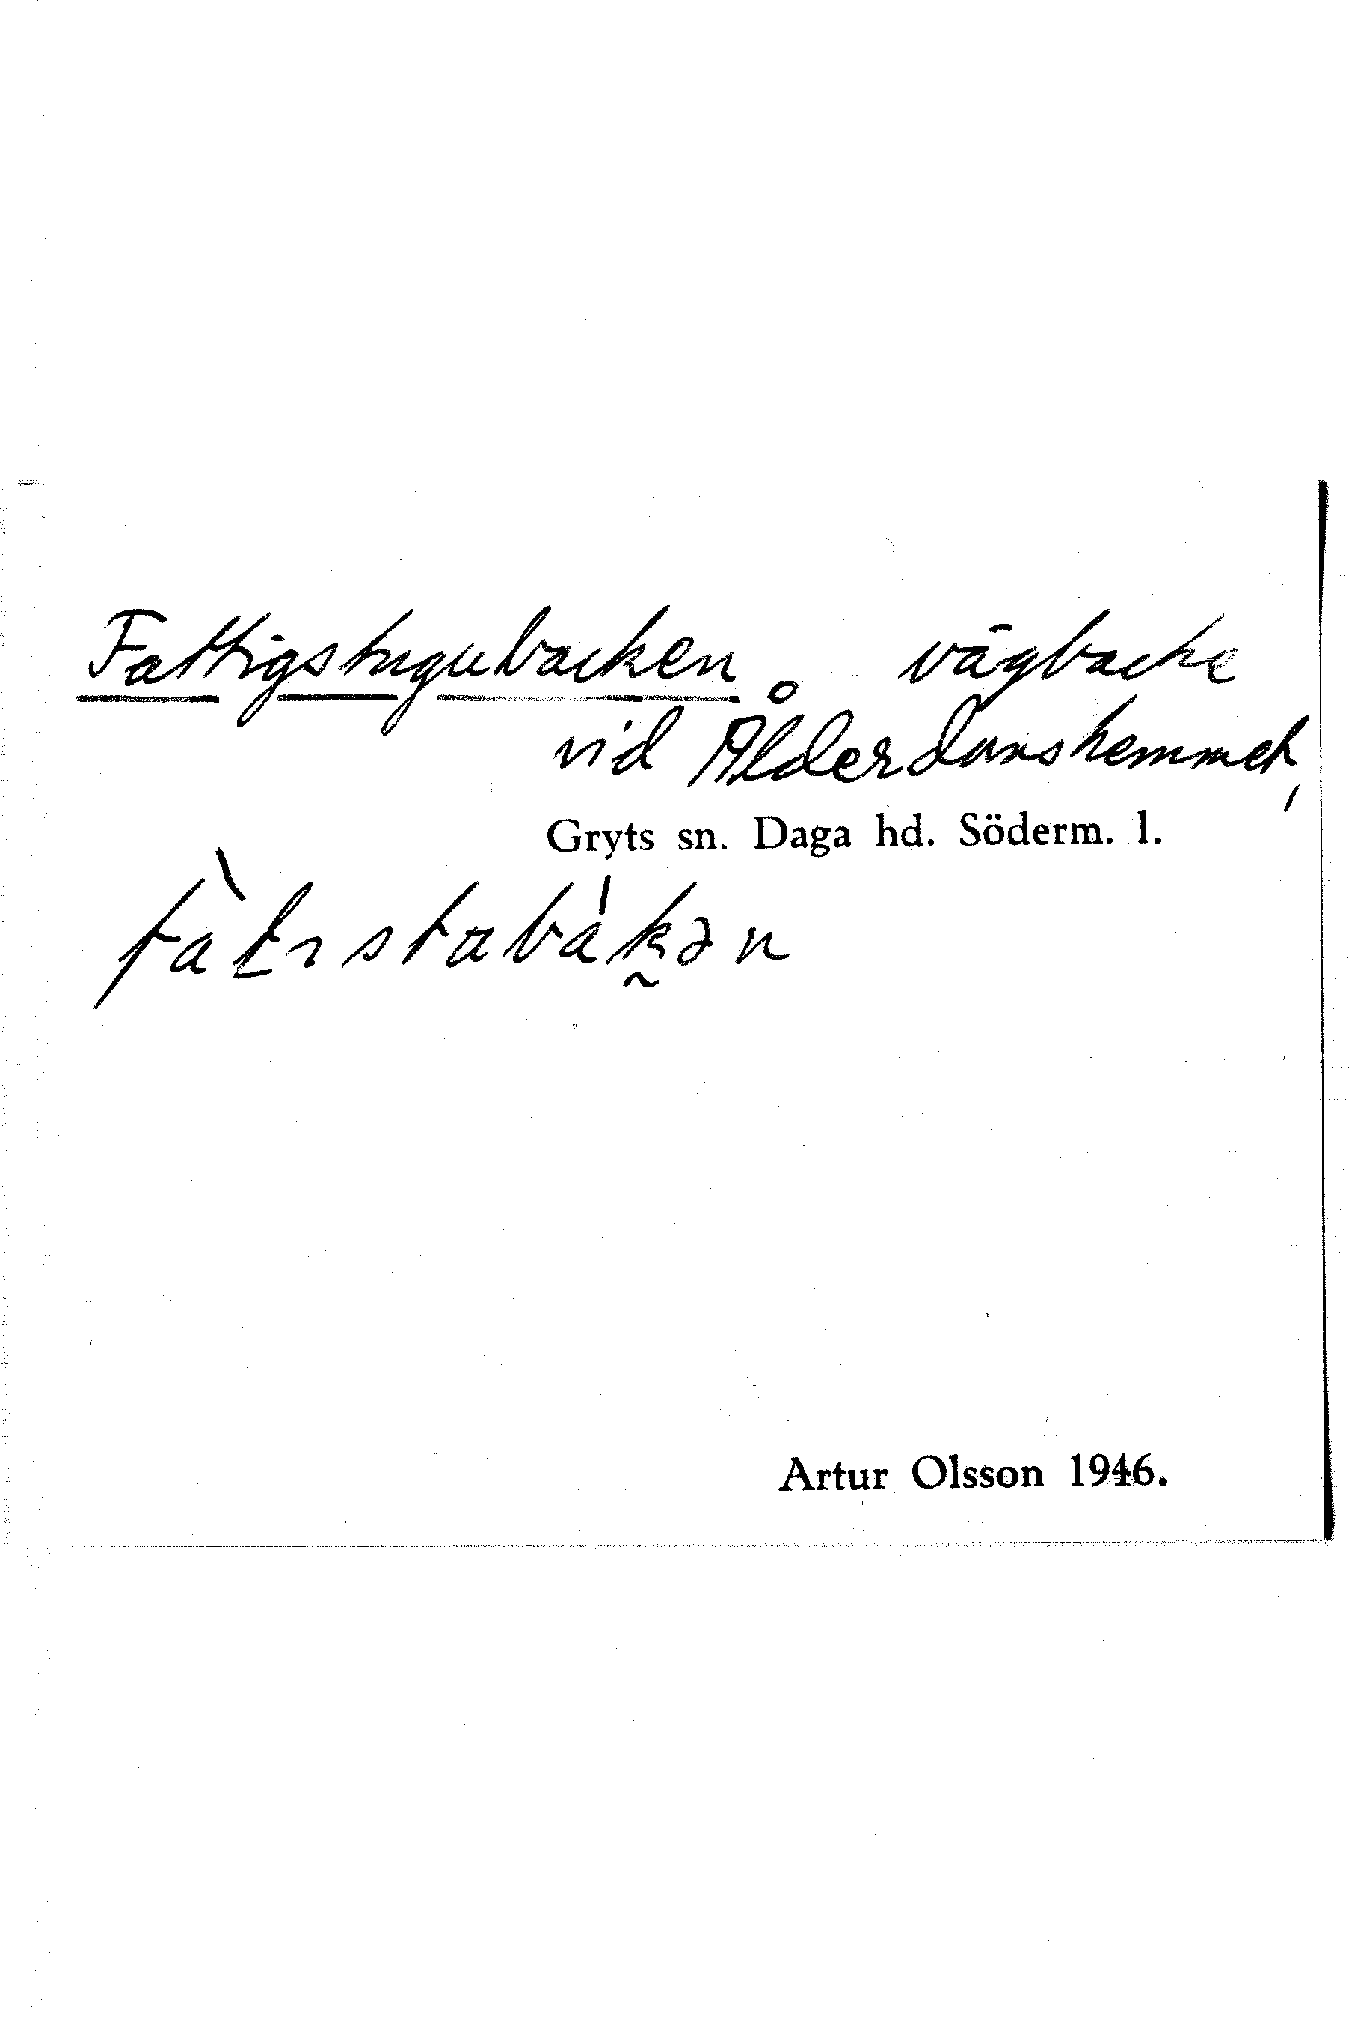 Fattigstugubacken vägbacke
vid Ålderdomshemmet,
Gryts sn. Daga hd. Söderm. l.
Artur Olsson 1946.